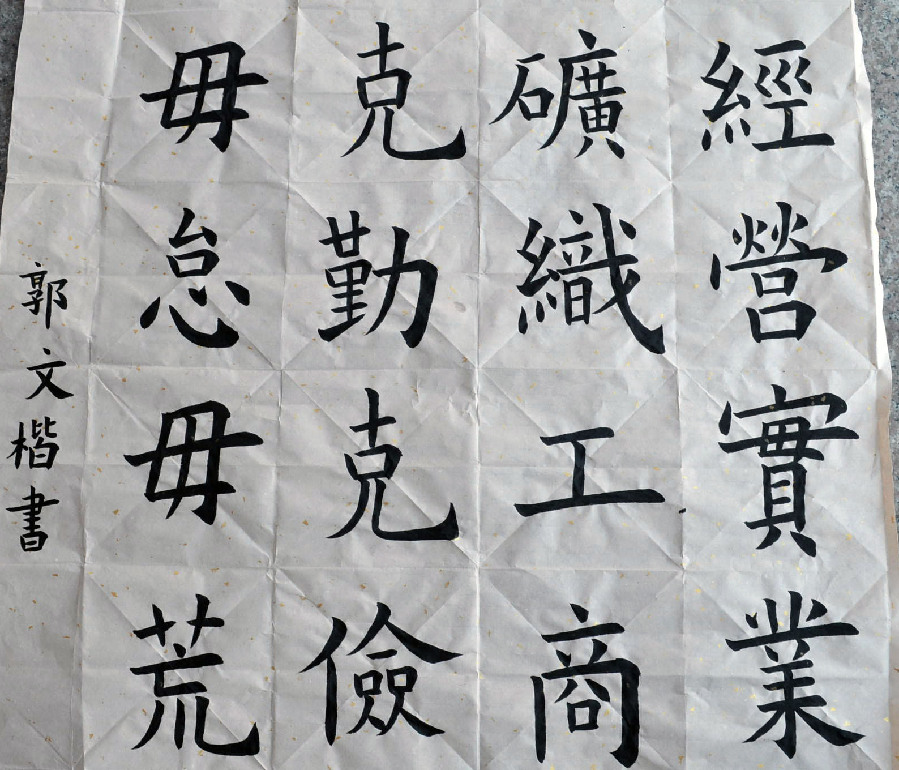 經營實業
礦織工商
克勤克儉
毋怠毋荒
郭文楷書